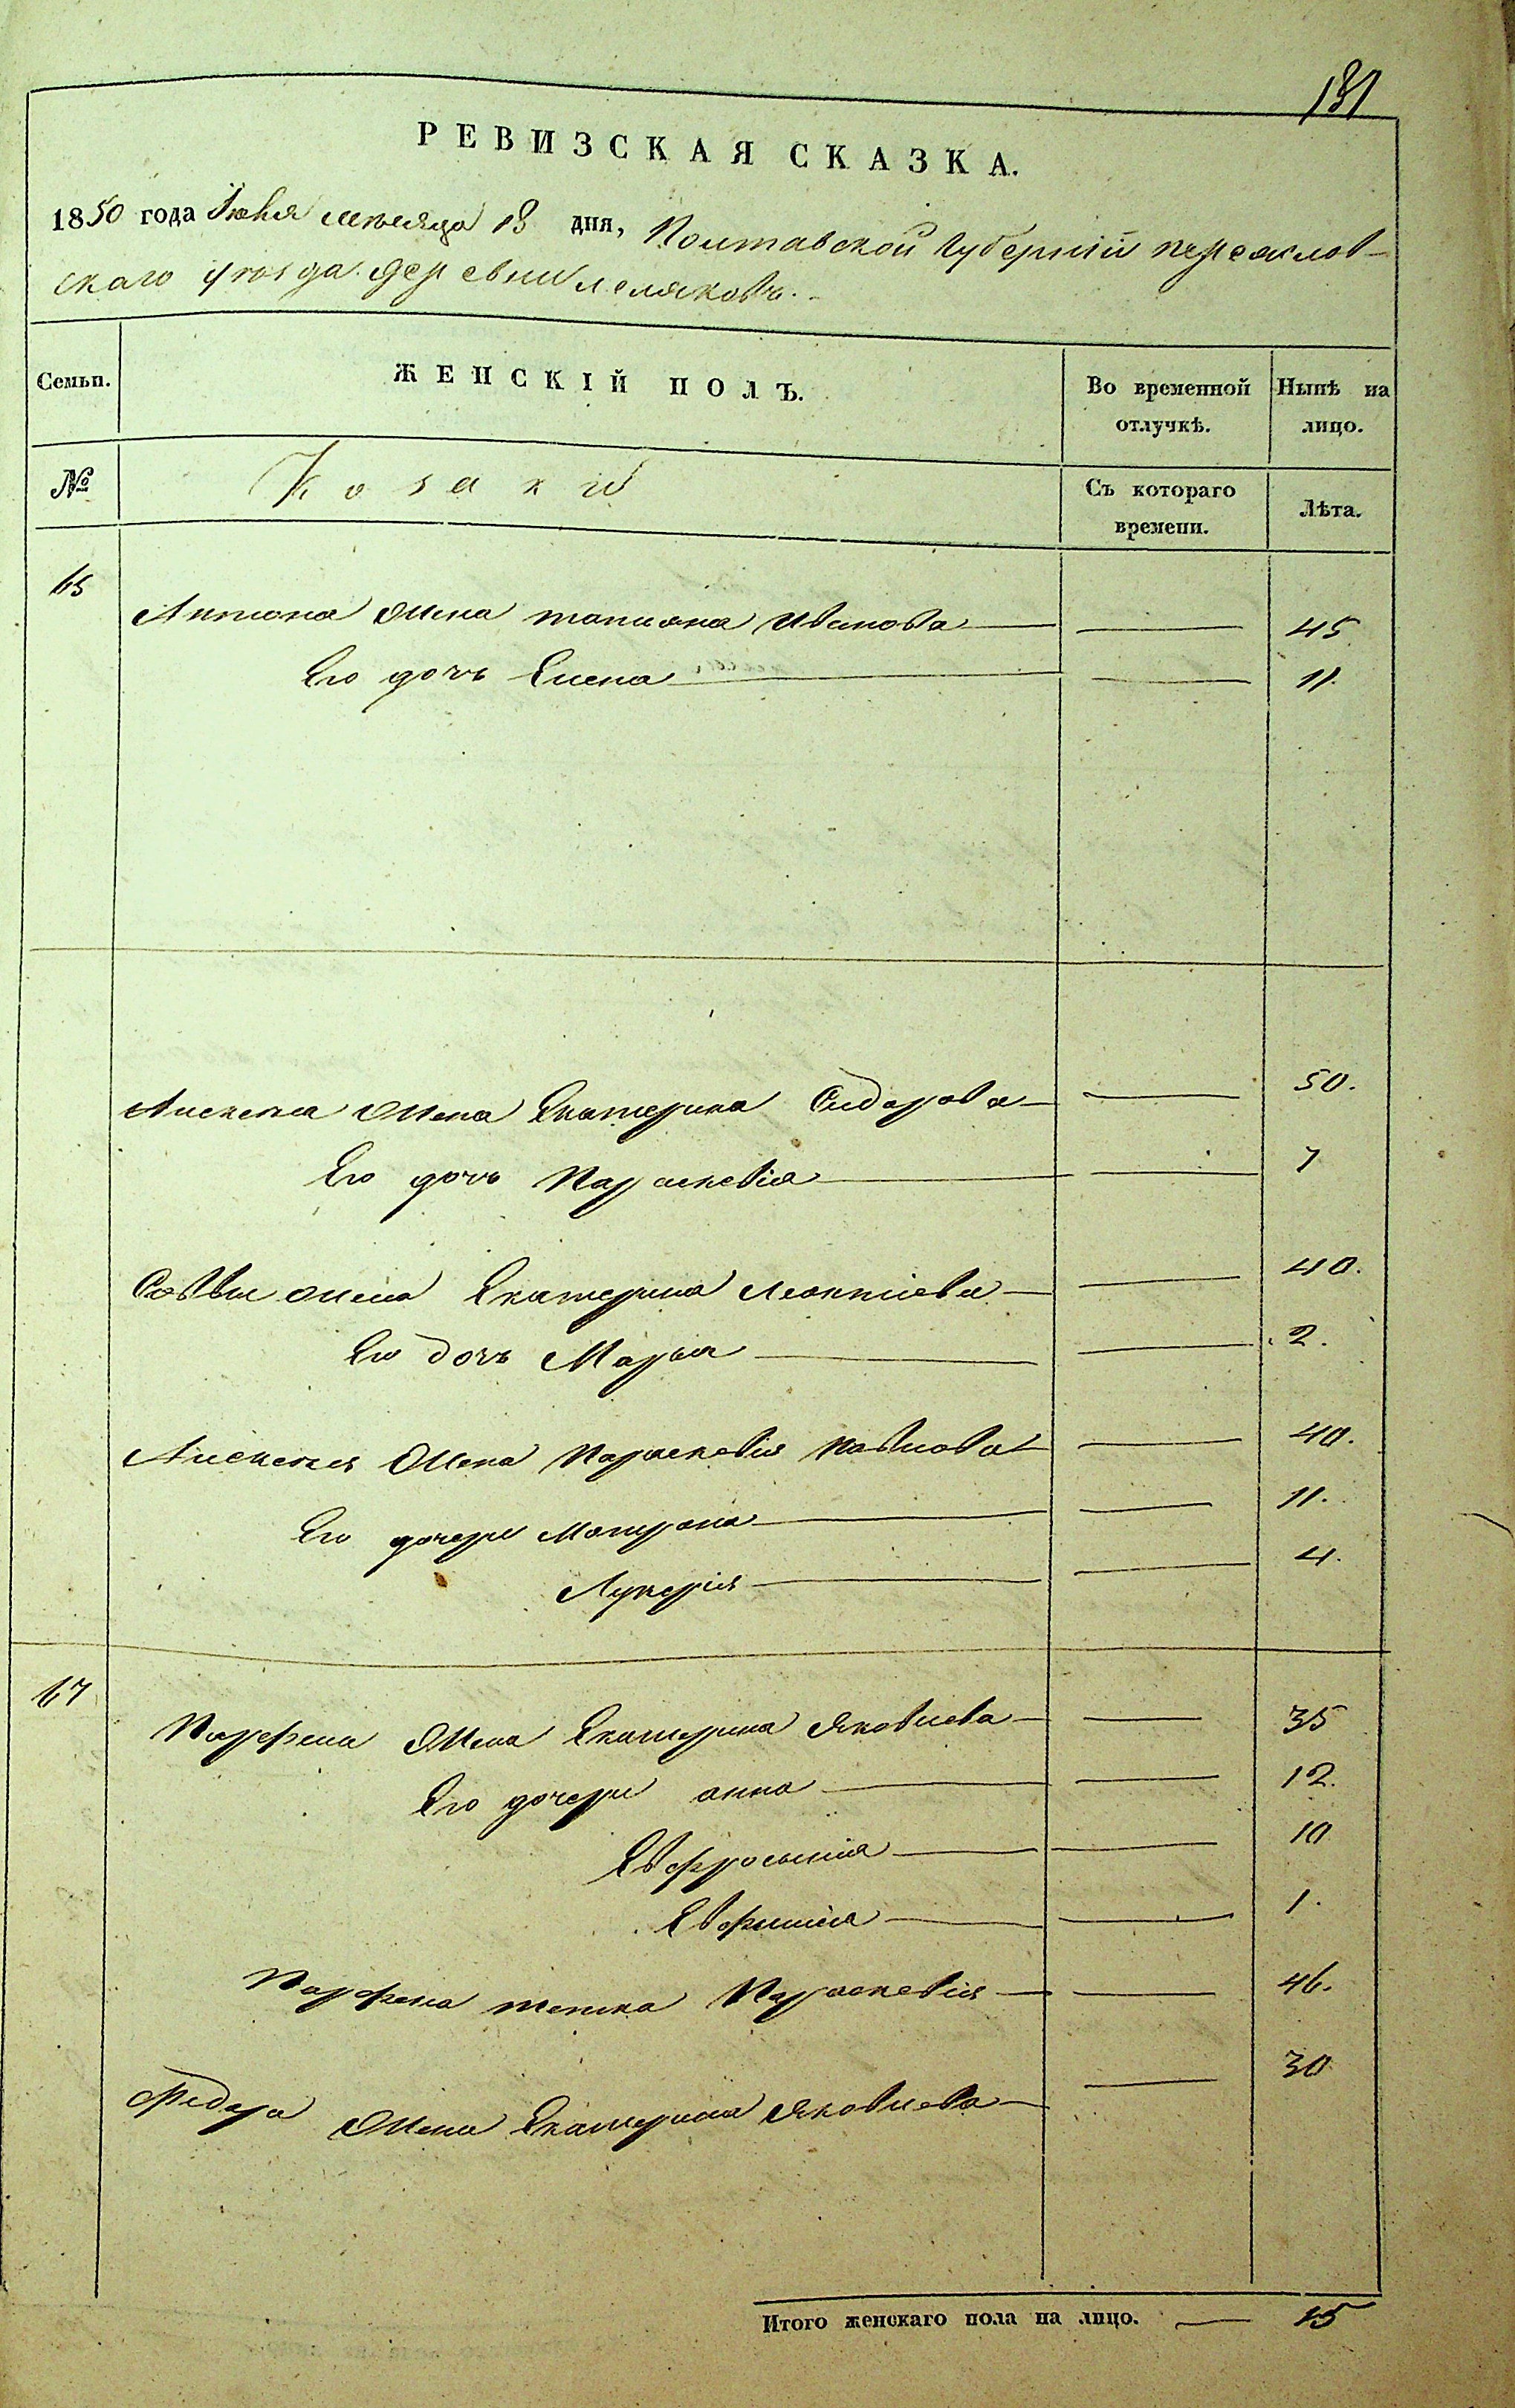 131
РЕВИЗСКАЯ СКАЗКА.
1850 года Іюня месяца 18 дня, Полтавской Губерніи переяслов-
скаго уезда деревни Леляковъ.
Семьи. ЖЕНСКІЙ ПОЛЪ. Во временной отлучкѣ. Нынѣ на лицо.
№ Козаки Съ котораго времени. Лѣта.
65
Антона жена татиана Иванова 45
Его дочь Елена 11.
Алексея жена Екатерина Сидорова 50.
Его дочь Параскевія 7
Саввы жена Екатерина Леонтіева 40.
Его дочь Марья 2.
Алексея жена Параскевія Павлова 40.
Его дочери Матрона 11.
Лукерія 4.
67
Парфена жена Екатерина Яковлева 35
Его дочери анна 12.
Евфросинія 10
Евфимия 1.
Парфена тетка Параскевія 46.
Федора жена Екатерина Яковлева 30
Итого женскаго пола на лицо. 15